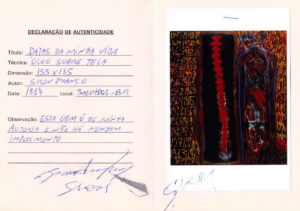 DECLARAÇÃO DE AUTENTICIDADE
Título: DATAS DA MINHA VIDA
Técnica: ÓLEO SOBRE TELA
Dimensão: 155 X 135
Autor: FRANCO
Data: Local: SALVADOR-BA
Observação: ESTA OBRA É DE MINHA
AUTORIA E NÃO HÁ NENHUM
IMPEDIMENTO